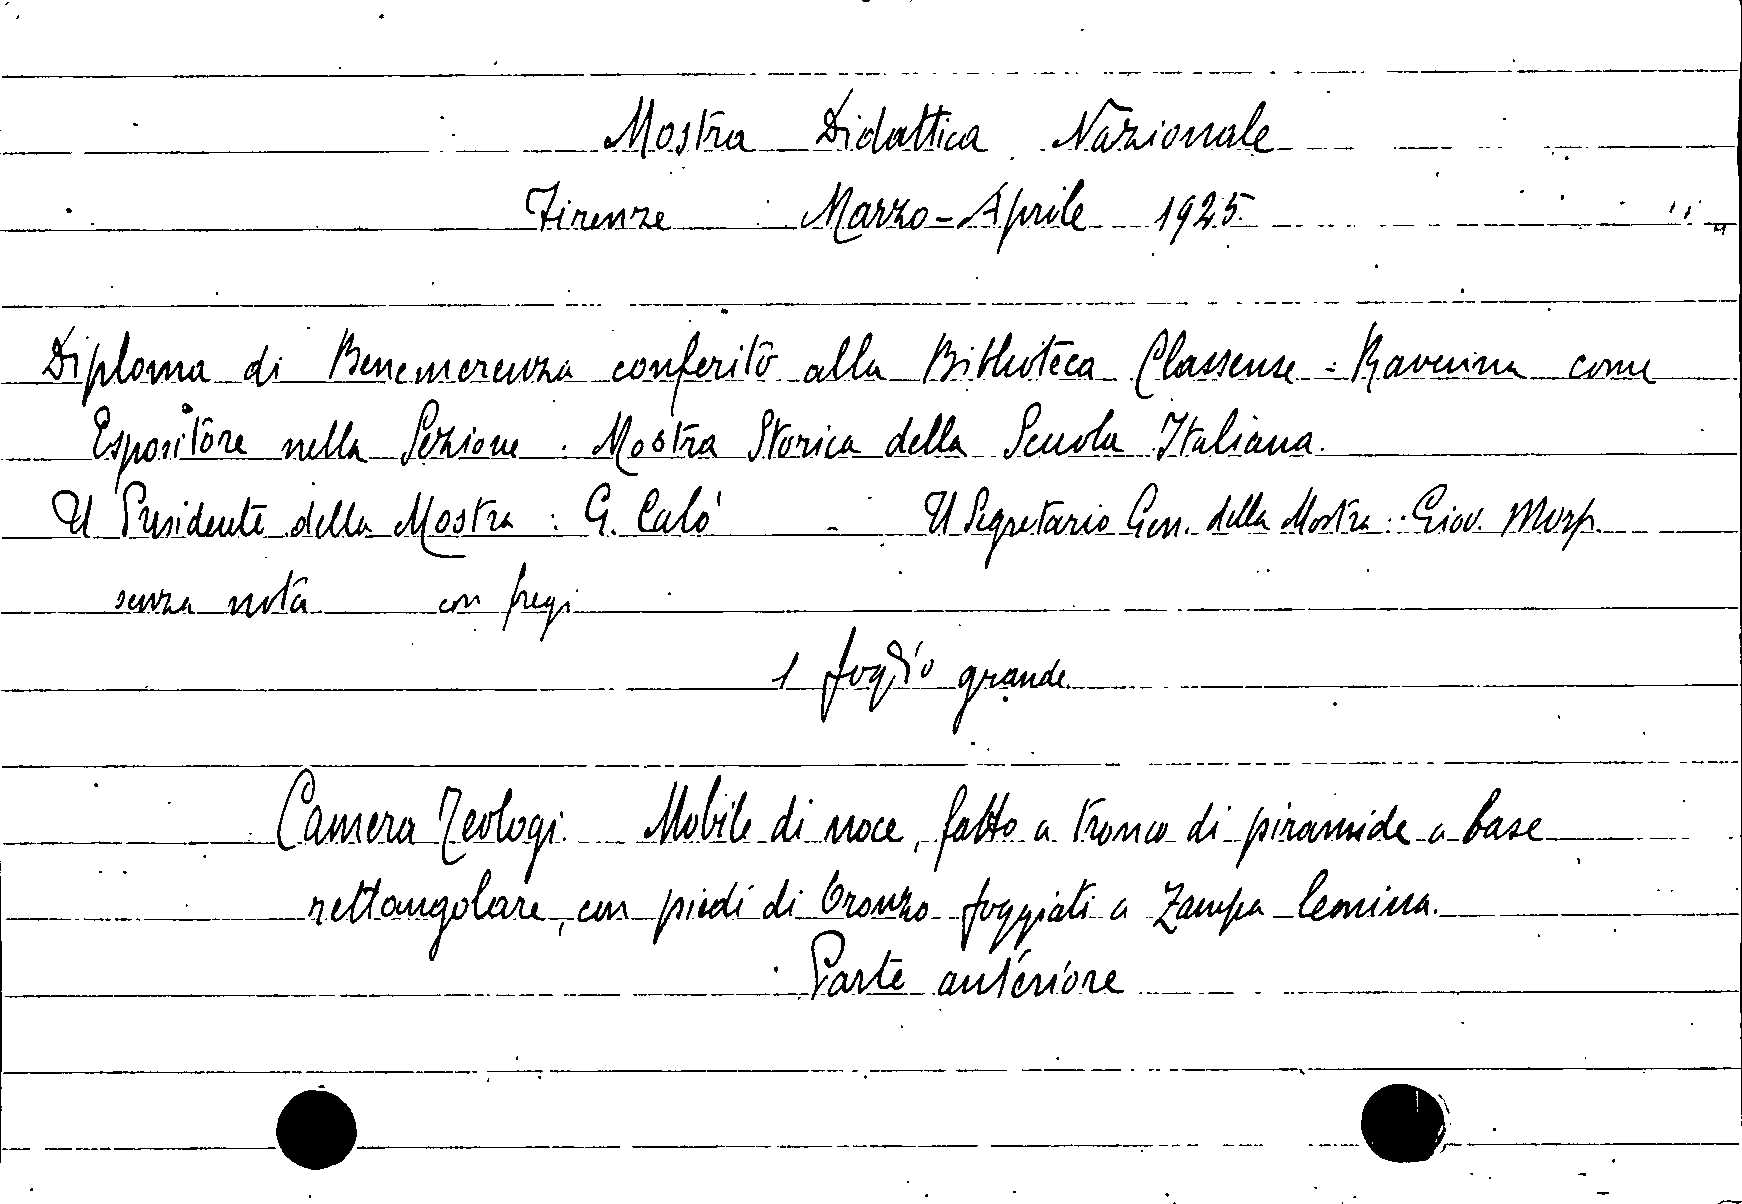 Mostra Didattica Nazionale
Firenze Marzo-Aprile 1925
Diploma di Benemerenza conferito alla Biblioteca Classense - Ravenna come
Espositore nella Sezione: Mostra Storica della Scuola Italiana.
Il Presidente della Mostra: G. Calò - Il Segretario Gen. della Mostra: Giov.
senza nota con fregi
1 foglio grande
Camera Teologi. Mobile di noce, fatto a tronco di piramide a base
rettangolare, con piedi di bronzo foggiati a zampa leonina.
Parte anteriore